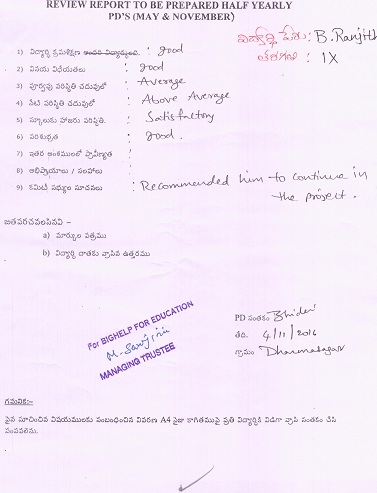 REVIEW REPORT TO BE PREPARED HALF YEARLY
PD'S (MAY & NOVEMBER)
విద్యార్థి పేరు: B. Ranjith
తరగతి : IX
1) విద్యార్థి క్రమశిక్షణ : good
2) వినయ విధేయతలు : good
3) పూర్వపు పరిస్థితి చదువులో : Average
4) నేటి పరిస్థితి చదువులో : Above Average
5) స్కూలుకు హాజరు పరిస్థితి. : Satisfactory
6) పరిశుభ్రత : good.
7) ఇతర అంశములలో ప్రావీణ్యత :
8) అభిప్రాయాలు / సలహాలు :
9) కమిటీ సభ్యుల సూచనలు : Recommended him to continue in
the project.
జతపరచవలసినవి :-
a) మార్కుల పత్రము
b) విద్యార్థి దాతకు వ్రాసిన ఉత్తరము
For BIGHELP FOR EDUCATION
MANAGING TRUSTEE
PD సంతకం
తేది. 4/11/2016
గ్రామం
గమనిక:-
పైన సూచించిన విషయములకు సంబంధించిన వివరణ A4 సైజు కాగితముపై ప్రతి విద్యార్థికి విడిగా వ్రాసి సంతకం చేసి
పంపవలెను.